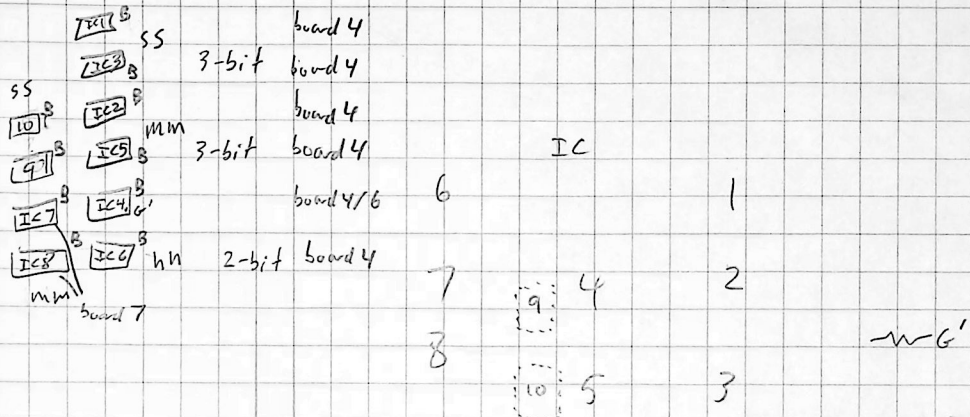 IC1 B board 4
ss
IC3 B 3-bit board 4
ss
10 B IC2 B board 4
mm
9 B IC5 B 3-bit board 4
IC
IC7 B IC4 B G' board 4/6 6 1
IC8 B IC6 B hh 2-bit board 4
mm 7 9 4 2
board 7
G'
8
10 5 3